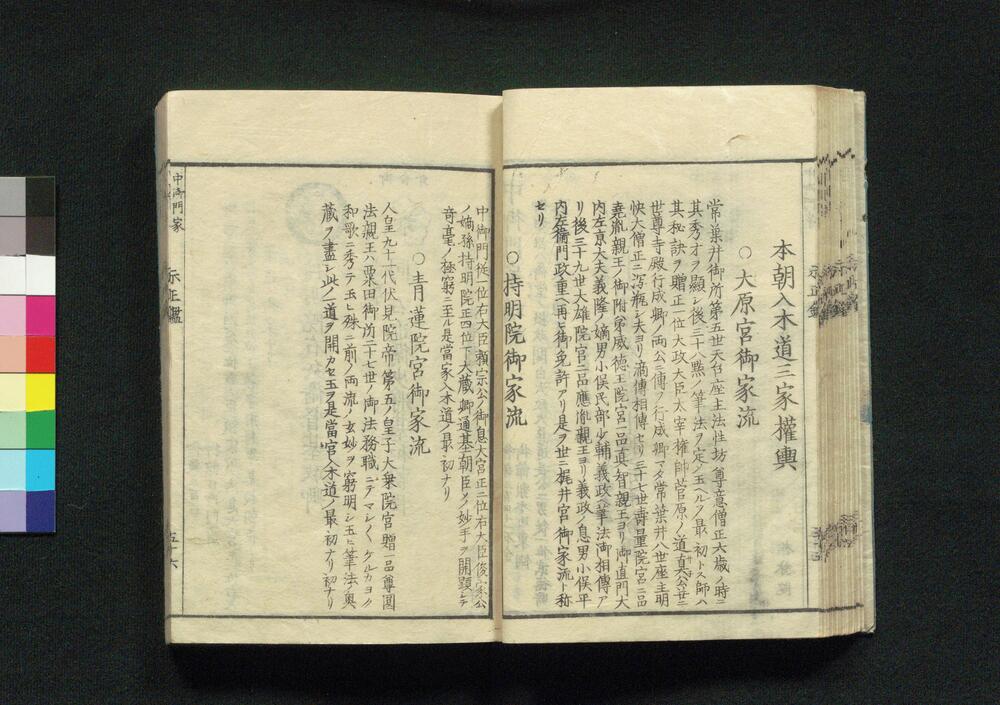 本朝入木道三家權輿
○大原宮御家流
常葉井御所第五世天台座主法性坊尊意僧正六歳ノ時ニ
其秀才ヲ顯シ後三十八點ノ筆法ヲ定メ玉ヘルヲ最初トス師ハ
其秘訣ヲ贈正一位大政大臣太宰權帥菅原ノ道真公并ニ
世尊寺殿行成卿ノ両公ニ傳フ行成卿マタ常葉井八世座主明
快大僧正ニ瀉瓶シ夫ヨリ滴傳相傳セリ三十七世壽量院宮二品
堯胤親王ノ御附弟威徳王院宮一品真智親王ヨリ御直門大
内左京大夫義隆ノ嫡男小俣民部少輔義政ヘ筆法御相傳ア
リ後三十九世大雄院宮二品應胤親王ヨリ義政ノ息男小俣平
内左衛門政重ヘ再ヒ御免許アリ是ヲ世ニ梶井宮御家流ト称
セリ
○持明院御家流
中御門従一位右大臣頼宗公ノ御息大宮正二位右大臣俊家公
ノ嫡孫持明院正四位下大蔵卿通基朝臣ノ妙手ヲ開顕シテ
奇毫ノ極窮ニ至ル是當家入木道ノ最初ナリ
○青蓮院宮御家流
人皇九十一代伏見院帝第五ノ皇子大乗院宮贈一品尊圓
法親王ハ粟田御所二十七世ノ御法務職ニテマシ〱ケルカヨク
和歌ニ秀テ玉ヒ殊ニ前ノ両流ノ玄妙ヲ窮明シ玉ヒ筆法ノ奥
蔵ヲ盡シ此ノ一道ヲ開カセ玉ヲ是當宮入木道ノ最初ナリ初ナリ
中御門家
示正鑑
五十六